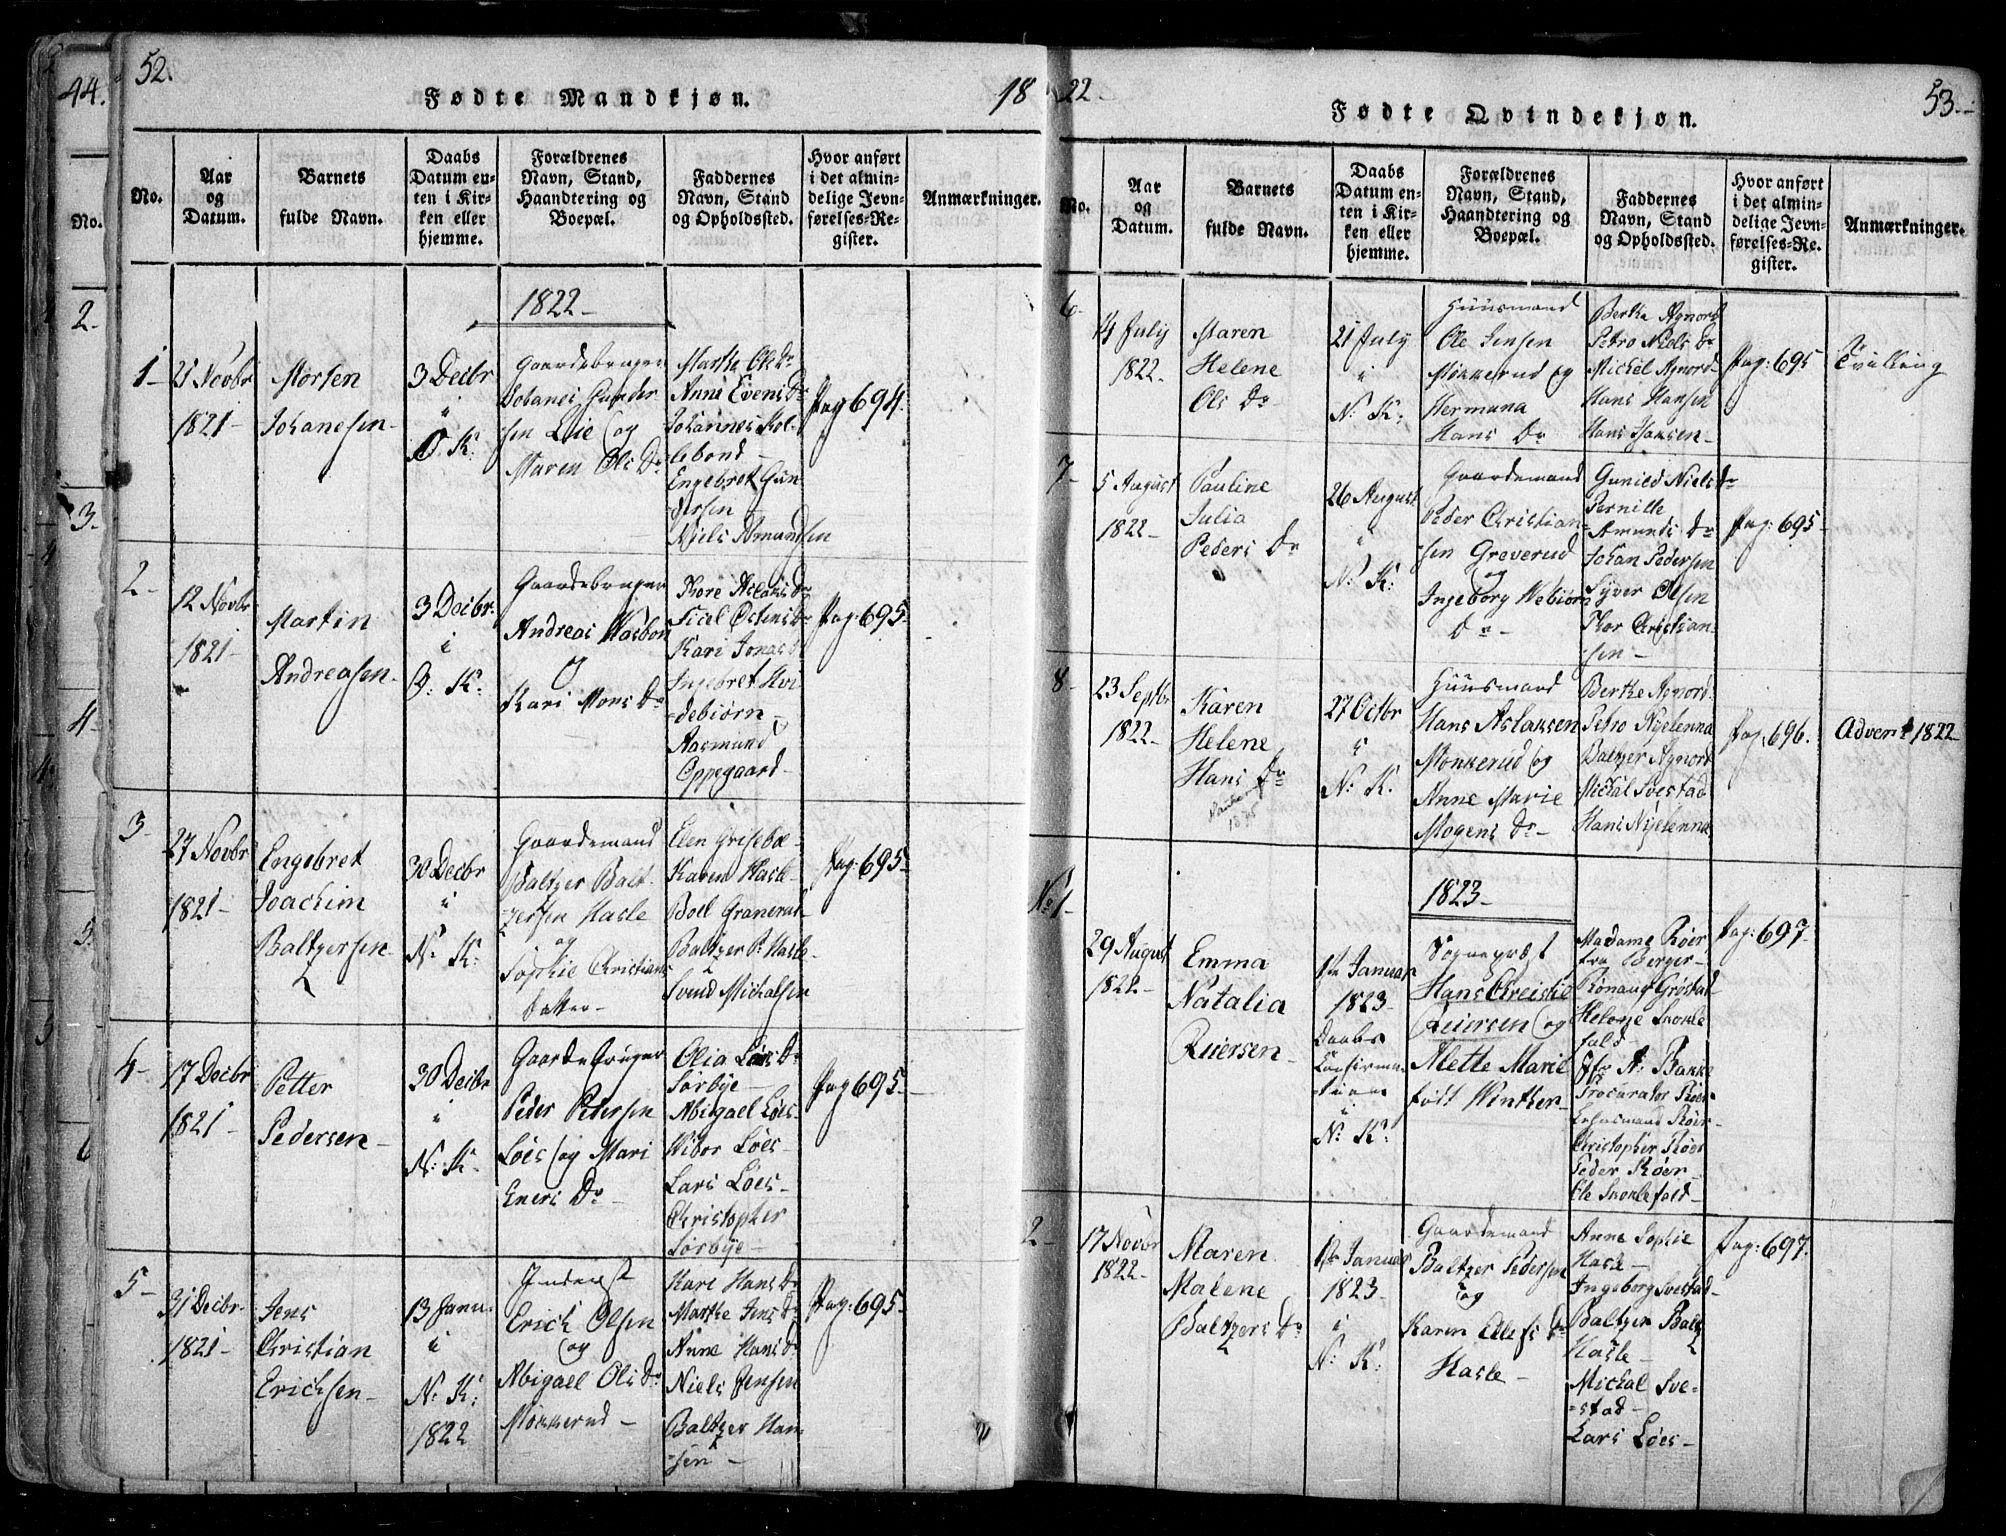 52.
Fødte Mandkjøn.
18
No.
Aar
og
Datum.
Barnets
fulde Navn.
Daabs
Datum en-
ten i Kir-
ken eller
hjemme.
Forældrenes
Navn, Stand,
Haandtering og
Boepæl.
Faddernes
Navn, Stand
og Opholdssted.
Hvor anført
i det almin-
delige Jevn-
førelses-Re-
gister.
Anmærkninger.
1822-
1-
21 Novbr
1821-
Morten
Johanesen-
3 Decbr
i
O K:
Gaardebruger
Johanes Gunder
sen Loe og
Maren Ols Dr
Marthe Ols Dr
Anne Evens Dr
Johannes Kol-
lebond-
Engebret Gun-
dersen-
Niels Amundsen
Pag 694.
2-
12 Novbr
1821-
Martin
Andreasen-
3 Decbr.
i
O: K:
Gaardebruger
Andreas Kasbon
og
Kari Mons Dr
Thore Aslaks Dr
Sicel Ostens Dr
Kari Jonas Dr
Ingebret Hvi-
debiørn-
Aasmund
Oppegaard-
Pag: 695-
3-
27 Novbr
1821-
Engebret
Joachim
Baltzersen
30 Decbr
i
N: K:
Gaardemand
Baltzer Balt-
zersen Hasle
og
Sophie Christians
datter-
Elen Grisebæ-
Karen Hasle-
Boel Granerud
Baltzer P: Hasle-
Svend Michalsen
Pag: 695-
4-
17 Decbr
1821-
Petter
Pedersen-
30 Decbr
i
N: K-
Gaardebruger
Peder Petersen
Løes og Mari
Eners Dr-
Olia Lars Dr
Sørbye-
Abigael Løes-
Widor Løes-
Lars Løes-
Christopher
Sørbye-
Pag 695-
5-
31 Decbr.
1821-
Jens
Christian
Erichsen-
13 Janu.
i
N: K:
1822
Inderst
Erick Olsen
og
Abigael Ols Dr
Mokkerud-
Kari Hans Dr
Marthe Jens Dr
Anne Hans Dr
Niels Jensen
Baltzer Han-
sen-
Pag: 695-
22-
53-
Fødte Qvindekjøn.
No.
Aar
og
Datum.
Barnets
fulde Navn.
Daabs
Datum en-
ten i Kir-
ken eller
hjemme.
Forældrenes
Navn, Stand,
Haandtering og
Boepæl.
Faddernes
Navn, Stand
og Opholdssted.
Hvor anført
i det almin-
delige Jevn-
førelses-Re-
gister.
Anmærkninger.
6-
14 July
1822-
Maren
Helene
Ols Dr
21 July
i
N: K:
Huusmand
Ole Jensen
Mokkerud og
Hermana
Hans Dr
Berthe Agnord
Petro Niels Dr
Michel Agnord-
Hans Hansen
Hans Hansen-
Pag: 695
Tvilling
7-
5 August
1822-
Pauline
Julia
Peders Dr
26 August
i
N: K:
Gaardemand
Peder Christian-
sen Greverud
og
Ingeborg Webiørn
Dr-
Gunild Niels Dr
Pernille
Amunds Dr
Johan Pedersen
Syver Olsen
Thor Christian-
sen-
Pag: 695-
8-
23 Septbr
1822-
Karen
Helene
Hans Dr
1875
27 Octbr
i
N: K.
Huusmand
Hans Aslaksen
Mokkerud og
Anne Marie
Mogens Dr-
Berthe Agnord-
Petro Nyelenna
Baltzer Agnord
Michal Svestad
Hans Nyelenna
Pag. 696.
Advent 1822
1823-
No 1-
29 August
1822-
Emma
Natalia
Reiersen-
1ste Januar
1823-
Daabs
Confirma-
tionen
i
N: K:
Sogneprest
Hans Christie
Reiersen og
Mette Marie
født Winther-
Madame Røer
fra Berger-
Rønaug Grøstad-
Helene Skokle
fald-
A: Banke
Procurator Røer-
Røer-
Christopher Røer
Peder Røer-
Ole Skoklefald-
Pag: 697-
2-
17 Novbr
1822-
Maren
Malene
Baltzers Dr
1ste Januar
1823-
i
N: K:
Gaardemand
Baltzer Pedersen
og
Karen Ellefs Dr
Hasle-
Anne Sophie
Hasle-
Ingeborg Svestad-
Baltzer Baltz
Hasle-
Michal Sve-
stad-
Lars Løes-
Pag: 697.
44.
No.
2-
3-
4-
5.
6